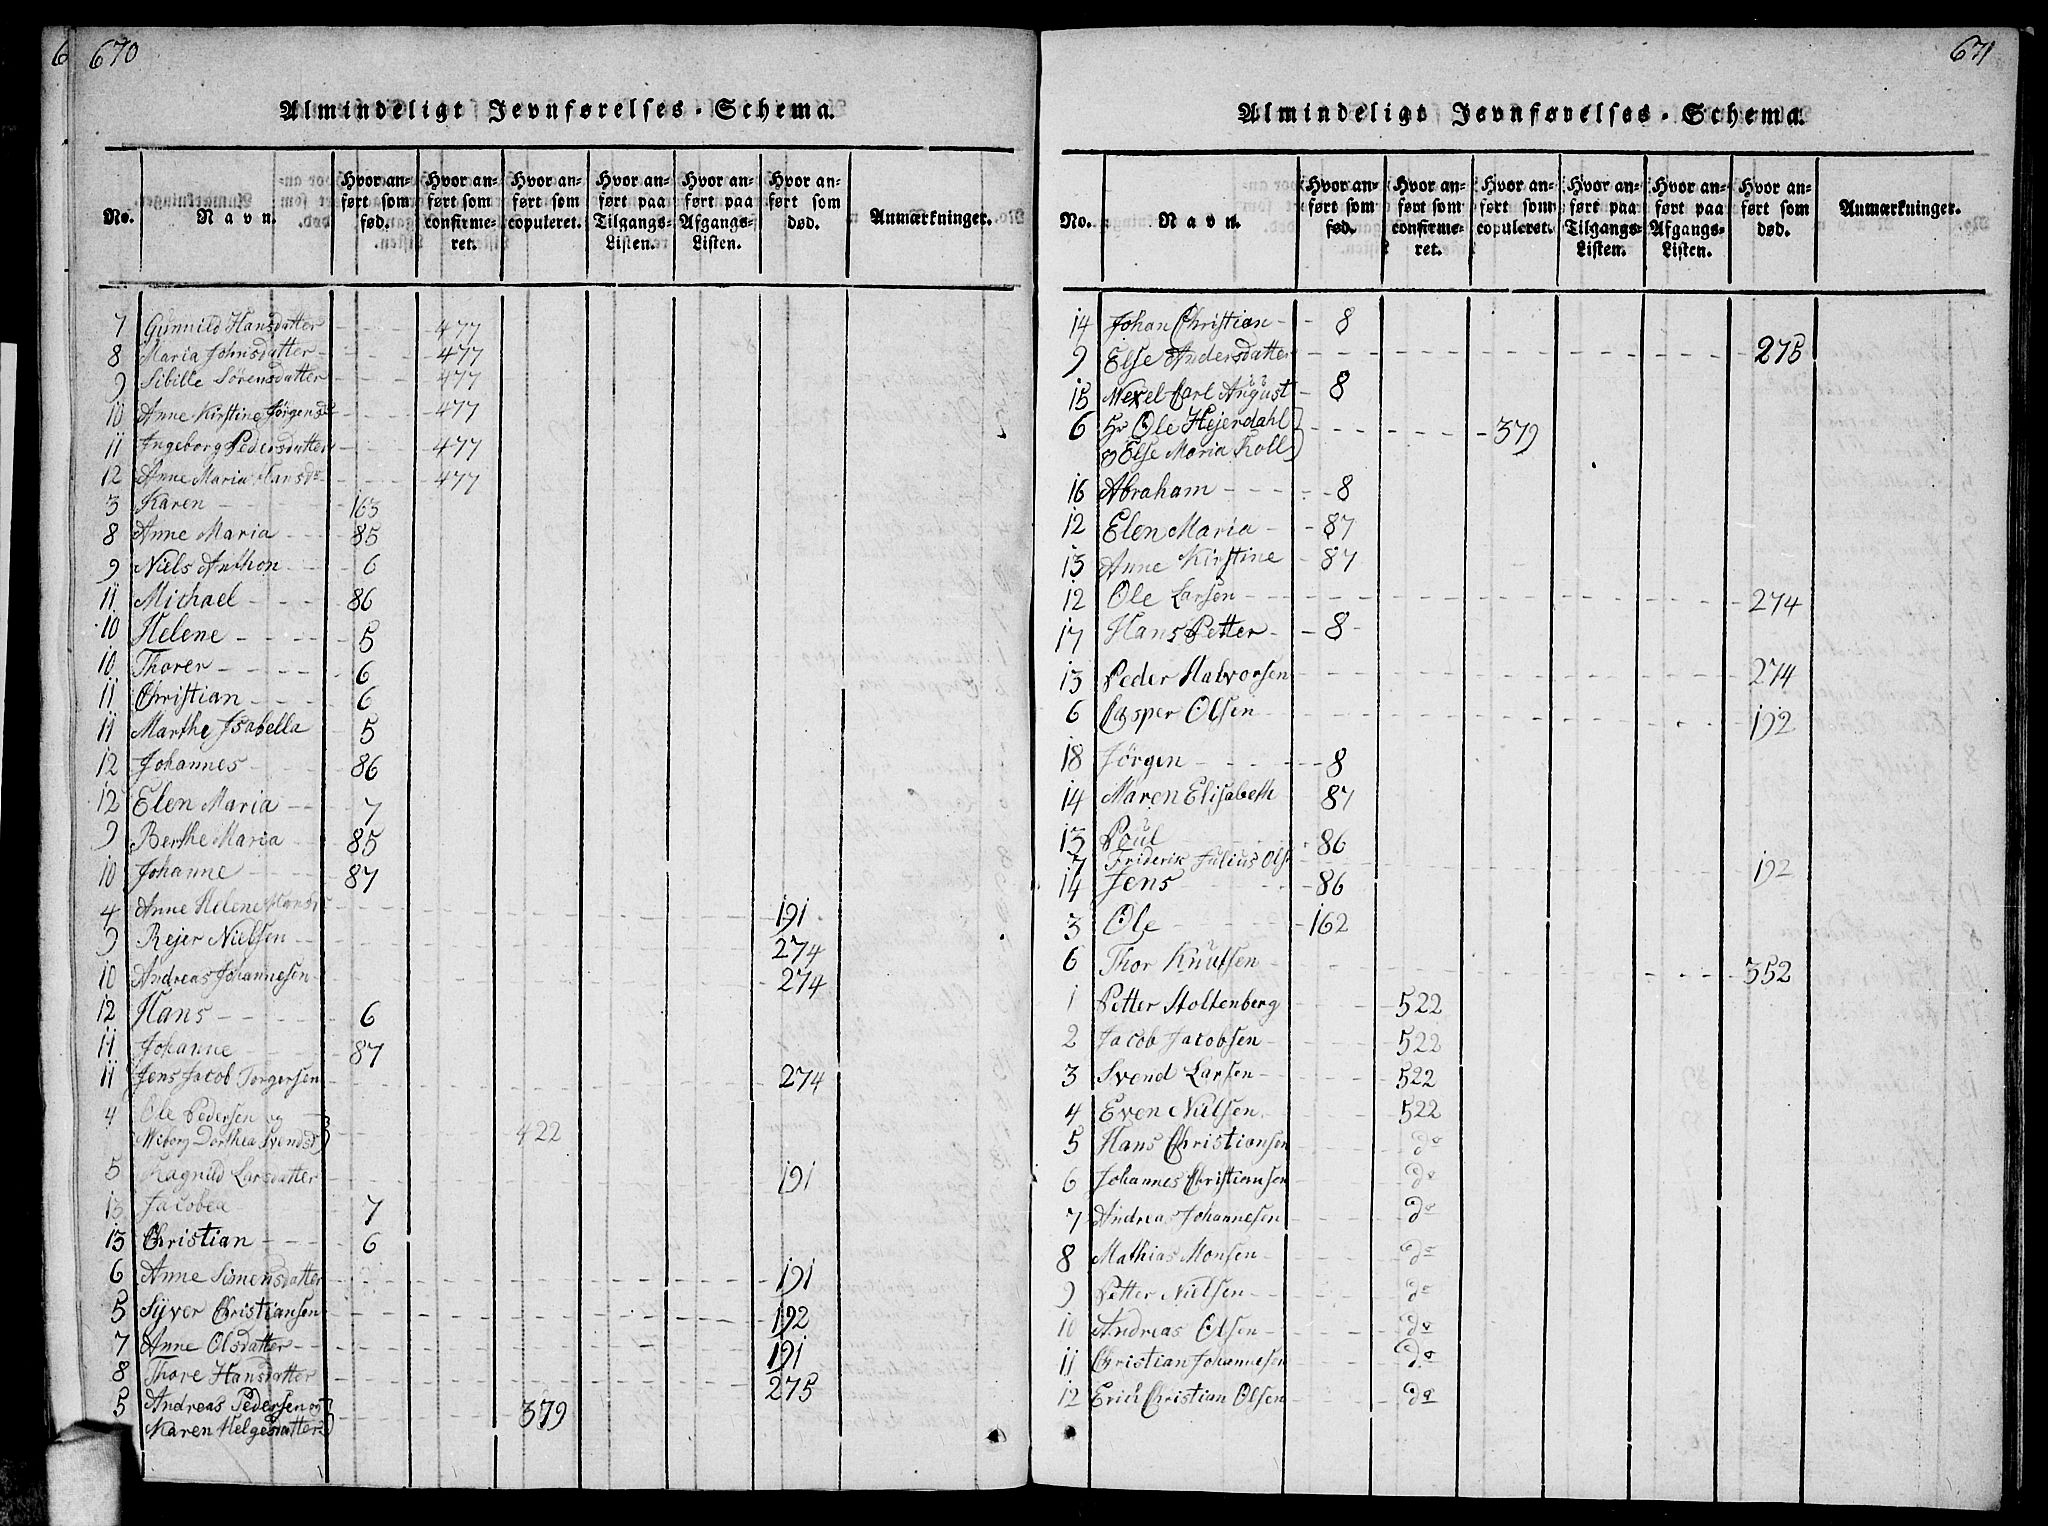 670
Almindeligt Jevnførelses-Schema.
No. Navn. Hvor anført som fød. Hvor anført som confirmeret. Hvor anført som copuleret. Hvor anført paa Tilgangs-Listen. Hvor anført paa Afgangs-Listen. Hvor anført som død. Anmærkninger.
7 Gunnild Hansdatter 477
8 Maria Johnsdatter 477
9 Sibille Sørensdatter 477
10 Anne Kirstine Jørgensd 477
11 Ingeborg Pedersdatter 477
12 Anne Maria Hansdr 477
3 Karen 163
8 Anne Maria 85
9 Niels Anthon 6
11 Michael 86
10 Helene 5
10 Thorer 6
11 Christian 6
11 Marthe Isabella 5
12 Johannes 86
12 Elen Maria 7
9 Berthe Maria 85
10 Johanne 87
4 Anne Helene 191
9 Rejer Nielsen 274
10 Andreas Johannesen 274
12 Hans 6
11 Johanne 87
11 Jens Jacob Torgersen 274
4 Ole Pedersen og
Wiborg Dorthea Svendsd 422
5 Ragnild Larsdatter 191
13 Jacobea 7
13 Christian 6
6 Anne Simensdatter 191
5 Syver Christiansen 192
7 Anne Olsdatter 191
8 Thore Hansdatter 275
5 Andreas Pedersen og
Karen Helgesdatter 379
671
Almindeligt Jevnførelses-Schema.
No. Navn. Hvor anført som fød. Hvor anført som confirmeret. Hvor anført som copuleret. Hvor anført paa Tilgangs-Listen. Hvor anført paa Afgangs-Listen. Hvor anført som død. Anmærkninger.
14 Johan Christian 8
9 Else Andersdatter 275
15 Mexel Carl August 8
6 Hr Ole Hejerdahl
og Else Maria Koll 379
16 Abraham 8
12 Elen Maria 87
13 Anne Kirstine 87
12 Ole Larsen 274
17 Hans Petter 8
13 Peder Halvorsen 274
6 Casper Olsen 192
18 Jørgen 8
14 Maren Elisabeth 87
13 Poul 86
7 Friderik Julius Ols 192
14 Jens 86
3 Ole 162
6 Thor Knutsen 352
1 Petter Stoltenberg 522
2 Jacob Jacobsen 522
3 Svend Larsen 522
4 Even Nielsen 522
5 Hans Christiansen do
6 Johannes Christiansen do
7 Andreas Johannesen do
8 Mathias Monsen do
9 Petter Nielsen do
10 Andreas Olsen do
11 Christian Johannesen do
12 Erich Christian Olsen do